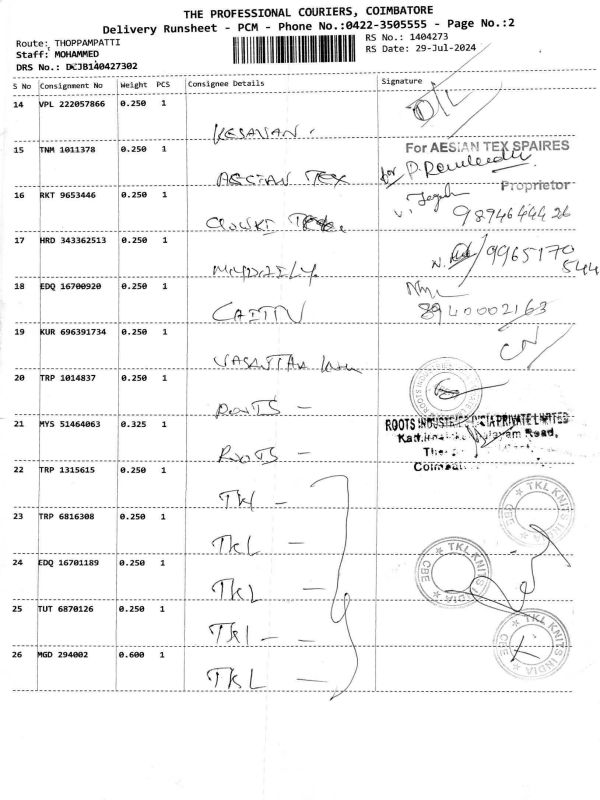 THE PROFESSIONAL COURIERS, COIMBATORE
Delivery Runsheet - PCM - Phone No.:0422-3505555 - Page No.:2
Route: THOPPAMPATTI
RS No.: 1404273
Staff: MOHAMMED
RS Date: 29-Jul-2024
DRS No.: DCJB140427302
S No Consignment No Weight PCS Consignee Details Signature
14 VPL 222057866 0.250 1
KESAVAN.
D/L
15 TNM 1011378 0.250 1
AESIAN TEX
For AESIAN TEX SPAIRES
for P.
Proprietor
16 RKT 9653446 0.250 1
9894644426
17 HRD 343362513 0.250 1
N. 9965170
544
18 EDQ 16700920 0.250 1
8940002163
19 KUR 696391734 0.250 1
VASANTHA
CN
20 TRP 1014837 0.250 1
ROOTS -
21 MYS 51464063 0.325 1
ROOTS -
ROOTS INDUSTRIES INDIA PRIVATE LIMITED
Road,
22 TRP 1315615 0.250 1
TKL -
TKL KNITS INDIA
CBE
23 TRP 6816308 0.250 1
TKL -
24 EDQ 16701189 0.250 1
TKL -
TKL KNITS INDIA
CBE
25 TUT 6870126 0.250 1
TKL - -
TKL KNITS INDIA
CBE
26 MGD 294002 0.600 1
TKL -